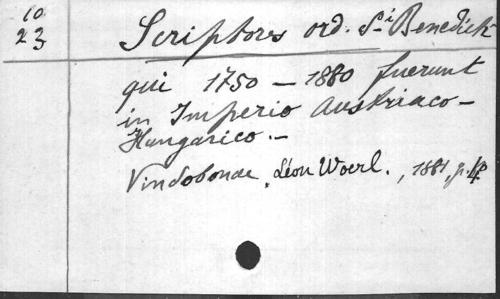 10
23
Scriptores ord. Sti Benedicti
qui 1750 - 1880 fuerunt
in Imperio Austriaco-
Hungarico.-
Vindobonae, Léon Woerl., 1881,